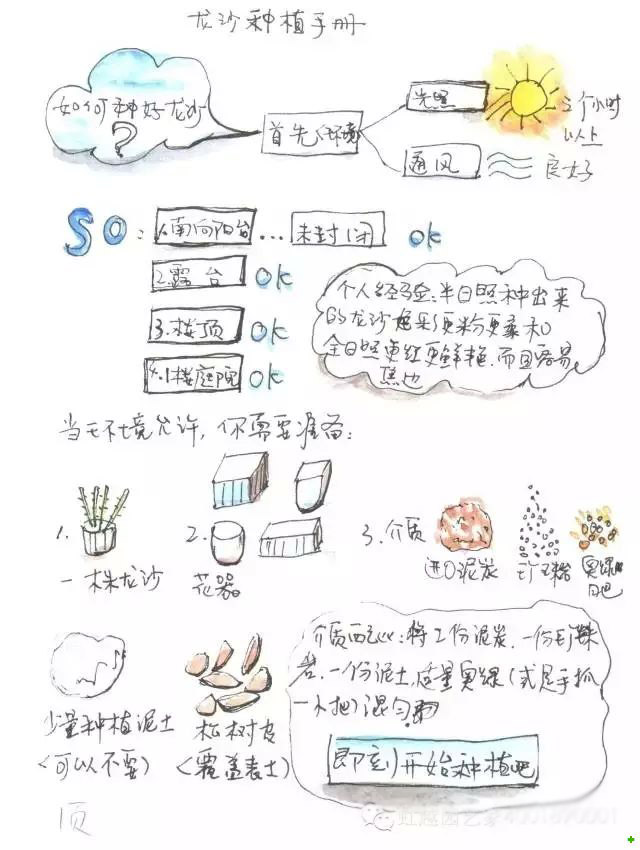 龙沙种植手册
如何种好龙沙
?
首先环境
光照
三个小时
以上
通风
良好
SO:
1.南向阳台...未封闭 OK
2.露台 OK
3.楼顶 OK
4.1楼庭院 OK
个人经验:半日照种出来
的龙沙 更粉更柔和
全日照更红更鲜艳.而且容易
焦边
当环境允许,你需要准备:
1.
一株龙沙
2.
花器
3.介质
进口泥炭
珍珠岩
奥绿
肥
少量种植泥土
(可以不要)
松树皮
(覆盖表土)
介质配比:将2份泥炭.一份珍珠
岩.一份泥土,适量奥绿(或是手抓
一小把)混匀
即刻开始种植吧
顶
虹越园艺家4001870001